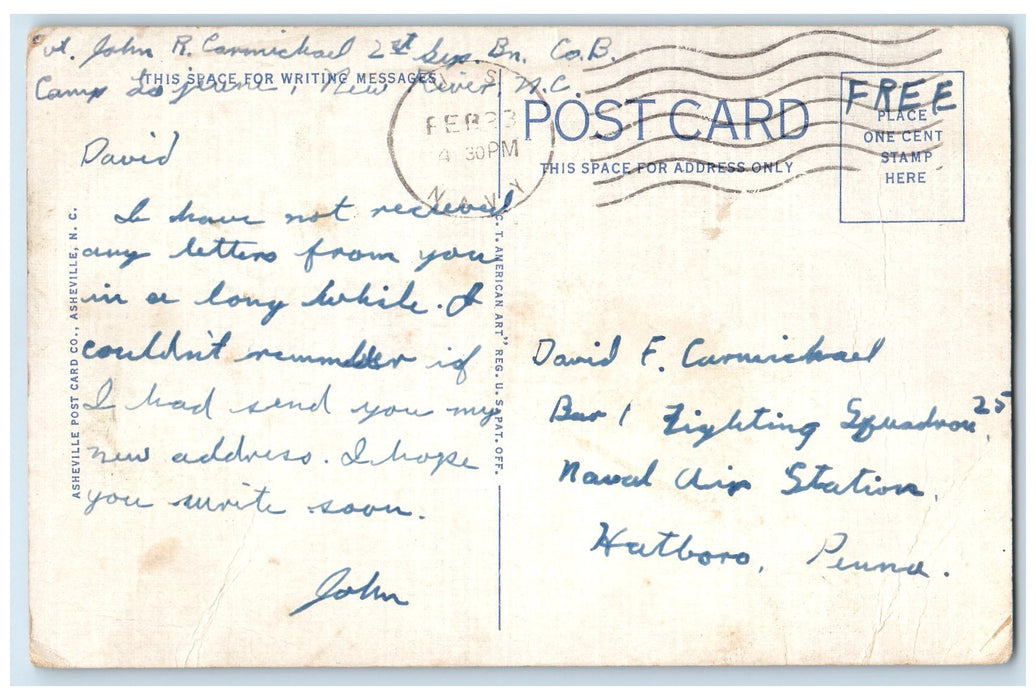 Pvt. John R. Carmichael 2st Sep. Bn. Co. B.
Camp Lejeune, New River, N.C.
THIS SPACE FOR WRITING MESSAGES
U S
FEB 23
4 30 PM
NAVY
POST CARD
THIS SPACE FOR ADDRESS ONLY
FREE
PLACE
ONE CENT
STAMP
HERE
David
I have not recieved
any letters from you
in a long while. I
couldn't remember if
I had send you my
new address. I hope
you write soon.
John
ASHEVILLE POST CARD CO., ASHEVILLE, N. C.
C. T. AMERICAN ART" REG. U. S. PAT. OFF.
David F. Carmichael
Bar 1 Fighting Squadron 25
Naval Air Station.
Hatboro, Penna.